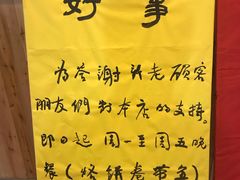 好事
为答谢新老顾客
朋友们對本店的支持。
即日起 周一至周五晚
餐（烙饼卷带鱼）